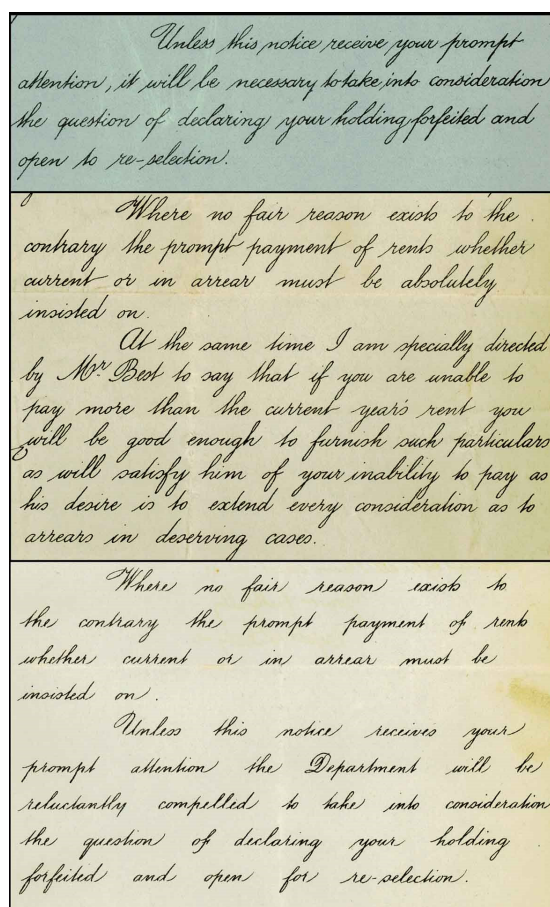 Unless this notice receive your prompt
attention, it will be necessary to take into consideration
the question of declaring your holding forfeited and
open to re-selection.
Where no fair reason exists to the
contrary the prompt payment of rents whether
current or in arrear must be absolutely
insisted on.
At the same time I am specially directed
by Mr. Best to say that if you are unable to
pay more than the current year's rent you
will be good enough to furnish such particulars
as will satisfy him of your inability to pay as
his desire is to extend every consideration as to
arrears in deserving cases.
Where no fair reason exists to
the contrary the prompt payment of rents
whether current or in arrear must be
insisted on.
Unless this notice receives your
prompt attention the Department will be
reluctantly compelled to take into consideration
the question of declaring your holding
forfeited and open for re-selection.